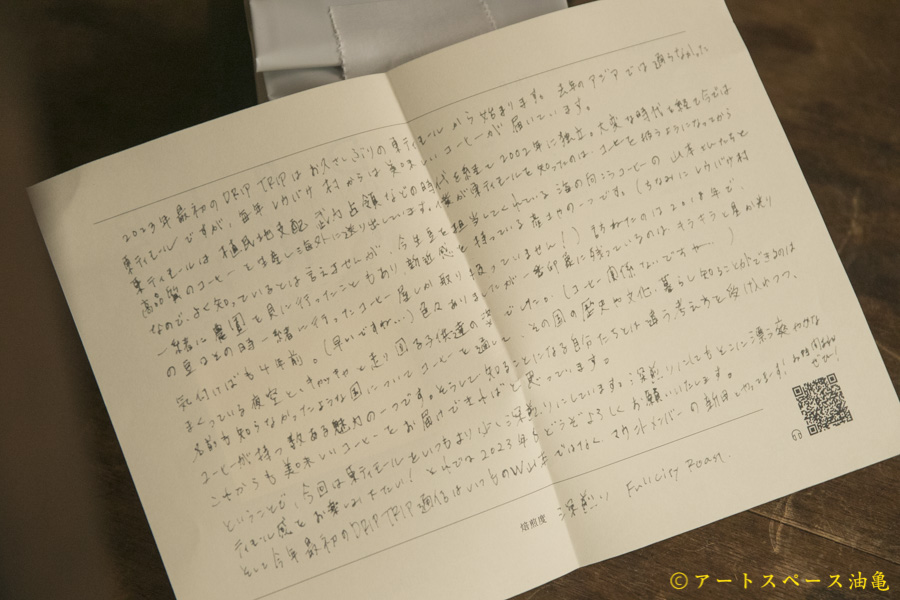 2023年最初のDRIP TRIPはお久さしぶりの東ティモールから始まります。去年のアジアでは通らなかった
東ティモールですが、毎年レウバケ村からは美味しいコーヒーが届いています。
東ティモールは植民地支配、武力占領などの時代を経て2002年に独立。大変な時代を経て今では
高品質のコーヒーを生産し海外に送り出しています。僕が東ティモールを知ったのは、コーヒーを扱うようになってから
なので、よく知っているとは言えませんが、今生豆を担当してくれている海の向こうコーヒーの山本さんたちと
一緒に農園を見に行ったこともあり、親近感を持っている産地の一つです。(ちなみにレウバケ村
の豆はその時一緒に行ったコーヒー屋しか取り扱っていません!)訪ねたのは2018年で、
気付けばも4年前。(早いですね…)色々ありましたが一番印象に残っているのはキラキラと星が光り
まくっている夜空と、キャッキャと走り回る子供達の姿でした。(コーヒー関係ないですが…)
名前も知らなかったような国についてコーヒーを通して、その国の歴史や文化、暮らし知ることができるのは
コーヒーが持つ数ある魅力の一つです。そうして知ることになる自分たちとは違う考え方を受け入れつつ、
これからも美味しいコーヒーをお届けできればと思っています。
ということで、今回は東ティモールをいつもより少し深煎りにしています。深煎りにしてもどこに漂う爽やかな
ティモール感をお楽しみ下さい!それでは2023年もどうぞよろしくお願いいたします。
そして今年最初のDRIP TRIP通信はいつものW山本ではなく、マウントメンバーの新田がやってます!お時間あれば
ぜひ!
焙煎度 深煎り Full City Roast.
©アートスペース油亀